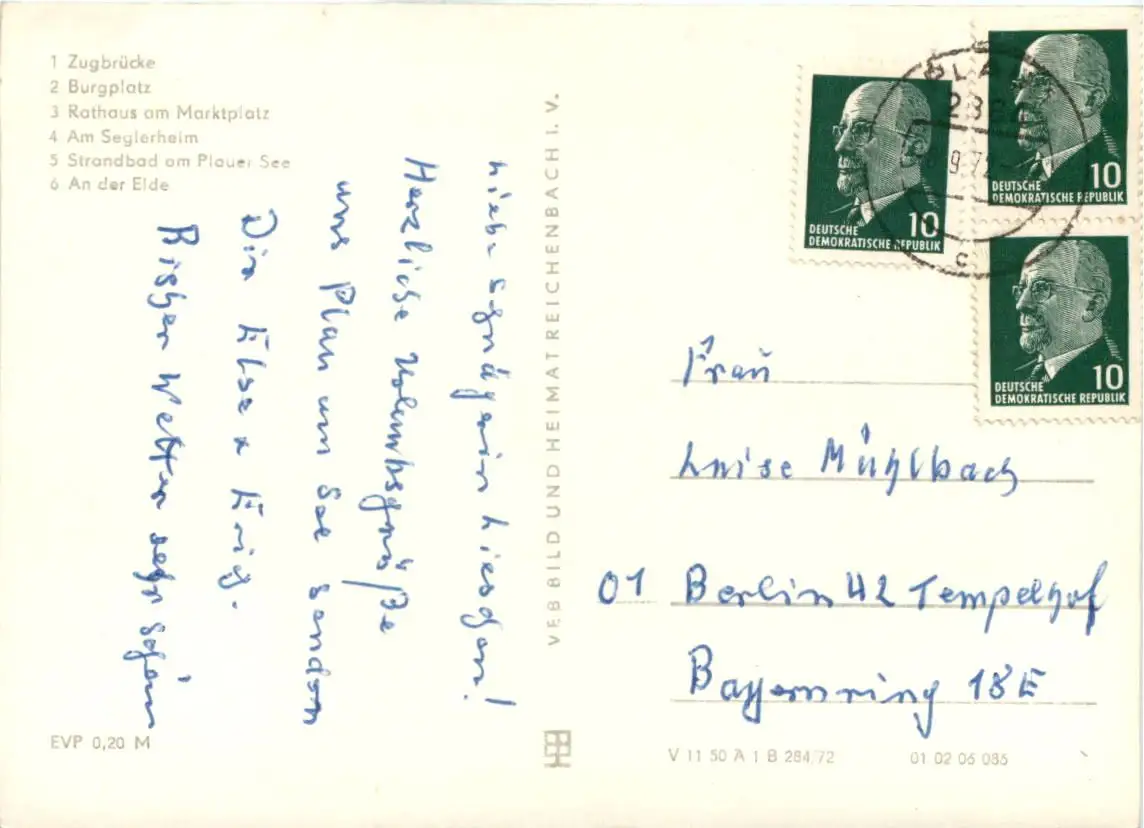 1 Zugbrücke
2 Burgplatz
3 Rathaus am Marktplatz
4 Am Seglerheim
5 Strandbad am Plauer See
6 An der Elde
Herzliche Urlaubsgrüße
aus Plau am See senden
Die Elsa u Erig.
Bisher Wetter sehr schön
EVP 0,20 M
VEB BILD UND HEIMAT REICHENBACH I. V.
10
DEUTSCHE
DEMOKRATISCHE REPUBLIK
10
DEUTSCHE
DEMOKRATISCHE REPUBLIK
10
DEUTSCHE
DEMOKRATISCHE REPUBLIK
PLAU
9.72
c
Frau
Luise Mühlbach
01 Berlin 42 Tempelhof
Bayernring 18E
V 11 50 A 1 B 284/72
01 02 06 085